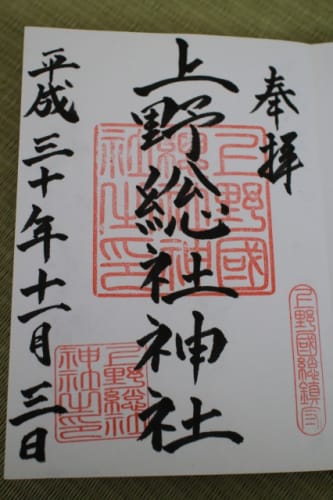 奉拝
上野國総鎮守
上野総社神社
上野國総社神社之印
平成三十年十一月三日
上野総社神社之印